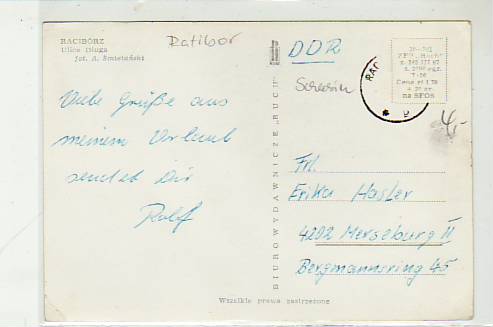 RACIBÓRZ
Ulica Długa
fot. A. Śmietański
Ratibor
DDR
Schlesien
Viele Grüße aus
meinem Urlaub
sendet Dir
Rolf
BIURO WYDAWNICZE „RUCH"
RAC
Cena zł 1.70
+ 20 gr
na SFOS
4,-
Frl.
Erika Hasler
4202 Merseburg II
Bergmannsring 45
Wszelkie prawa zastrzeżone